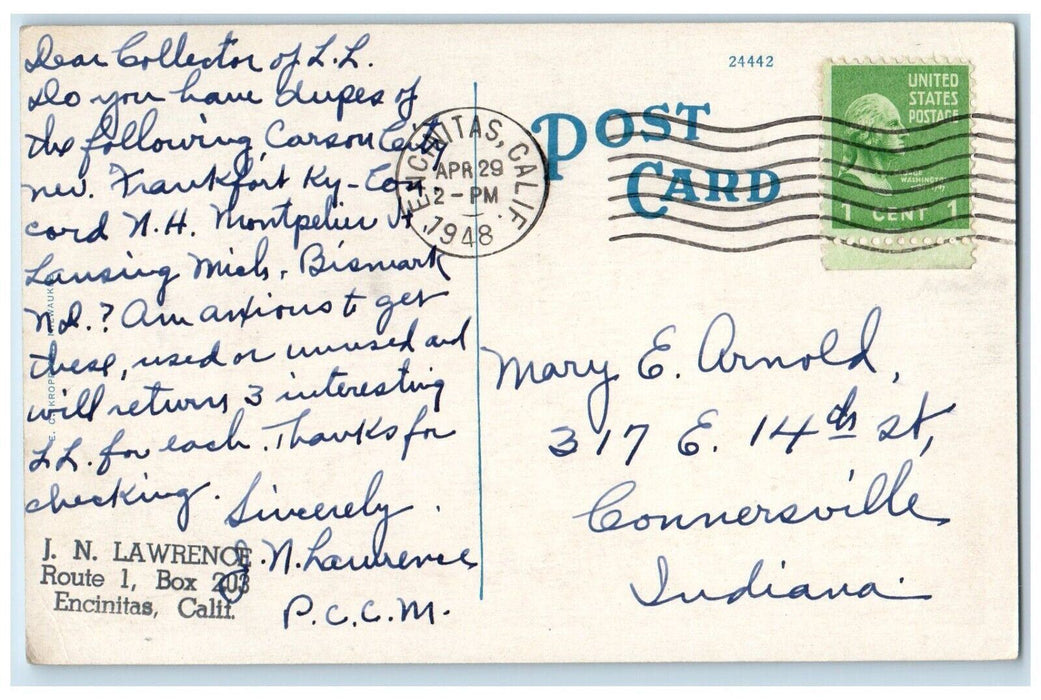 Dear Collector of L.L.
Do you have dupes of
the following, Carson City
Nev. Frankfort Ky - Con
cord N.H. Montpelier Vt
Lansing Mich, Bismark
N.D.? Am anxious to get
these, used or unused and
will return 3 interesting
L.L. for each. Thanks for
checking.
Sincerely,
J. N. Lawrence
P.C.C.M.
J. N. LAWRENCE
Route 1, Box 203
Encinitas, Calif.
ENCINITAS, CALIF.
APR 29
2 - PM
1948
24442
POST
CARD
UNITED
STATES
POSTAGE
WASHINGTON
1 CENT 1
Mary E. Arnold,
317 E. 14th st,
Connersville
Indiana.